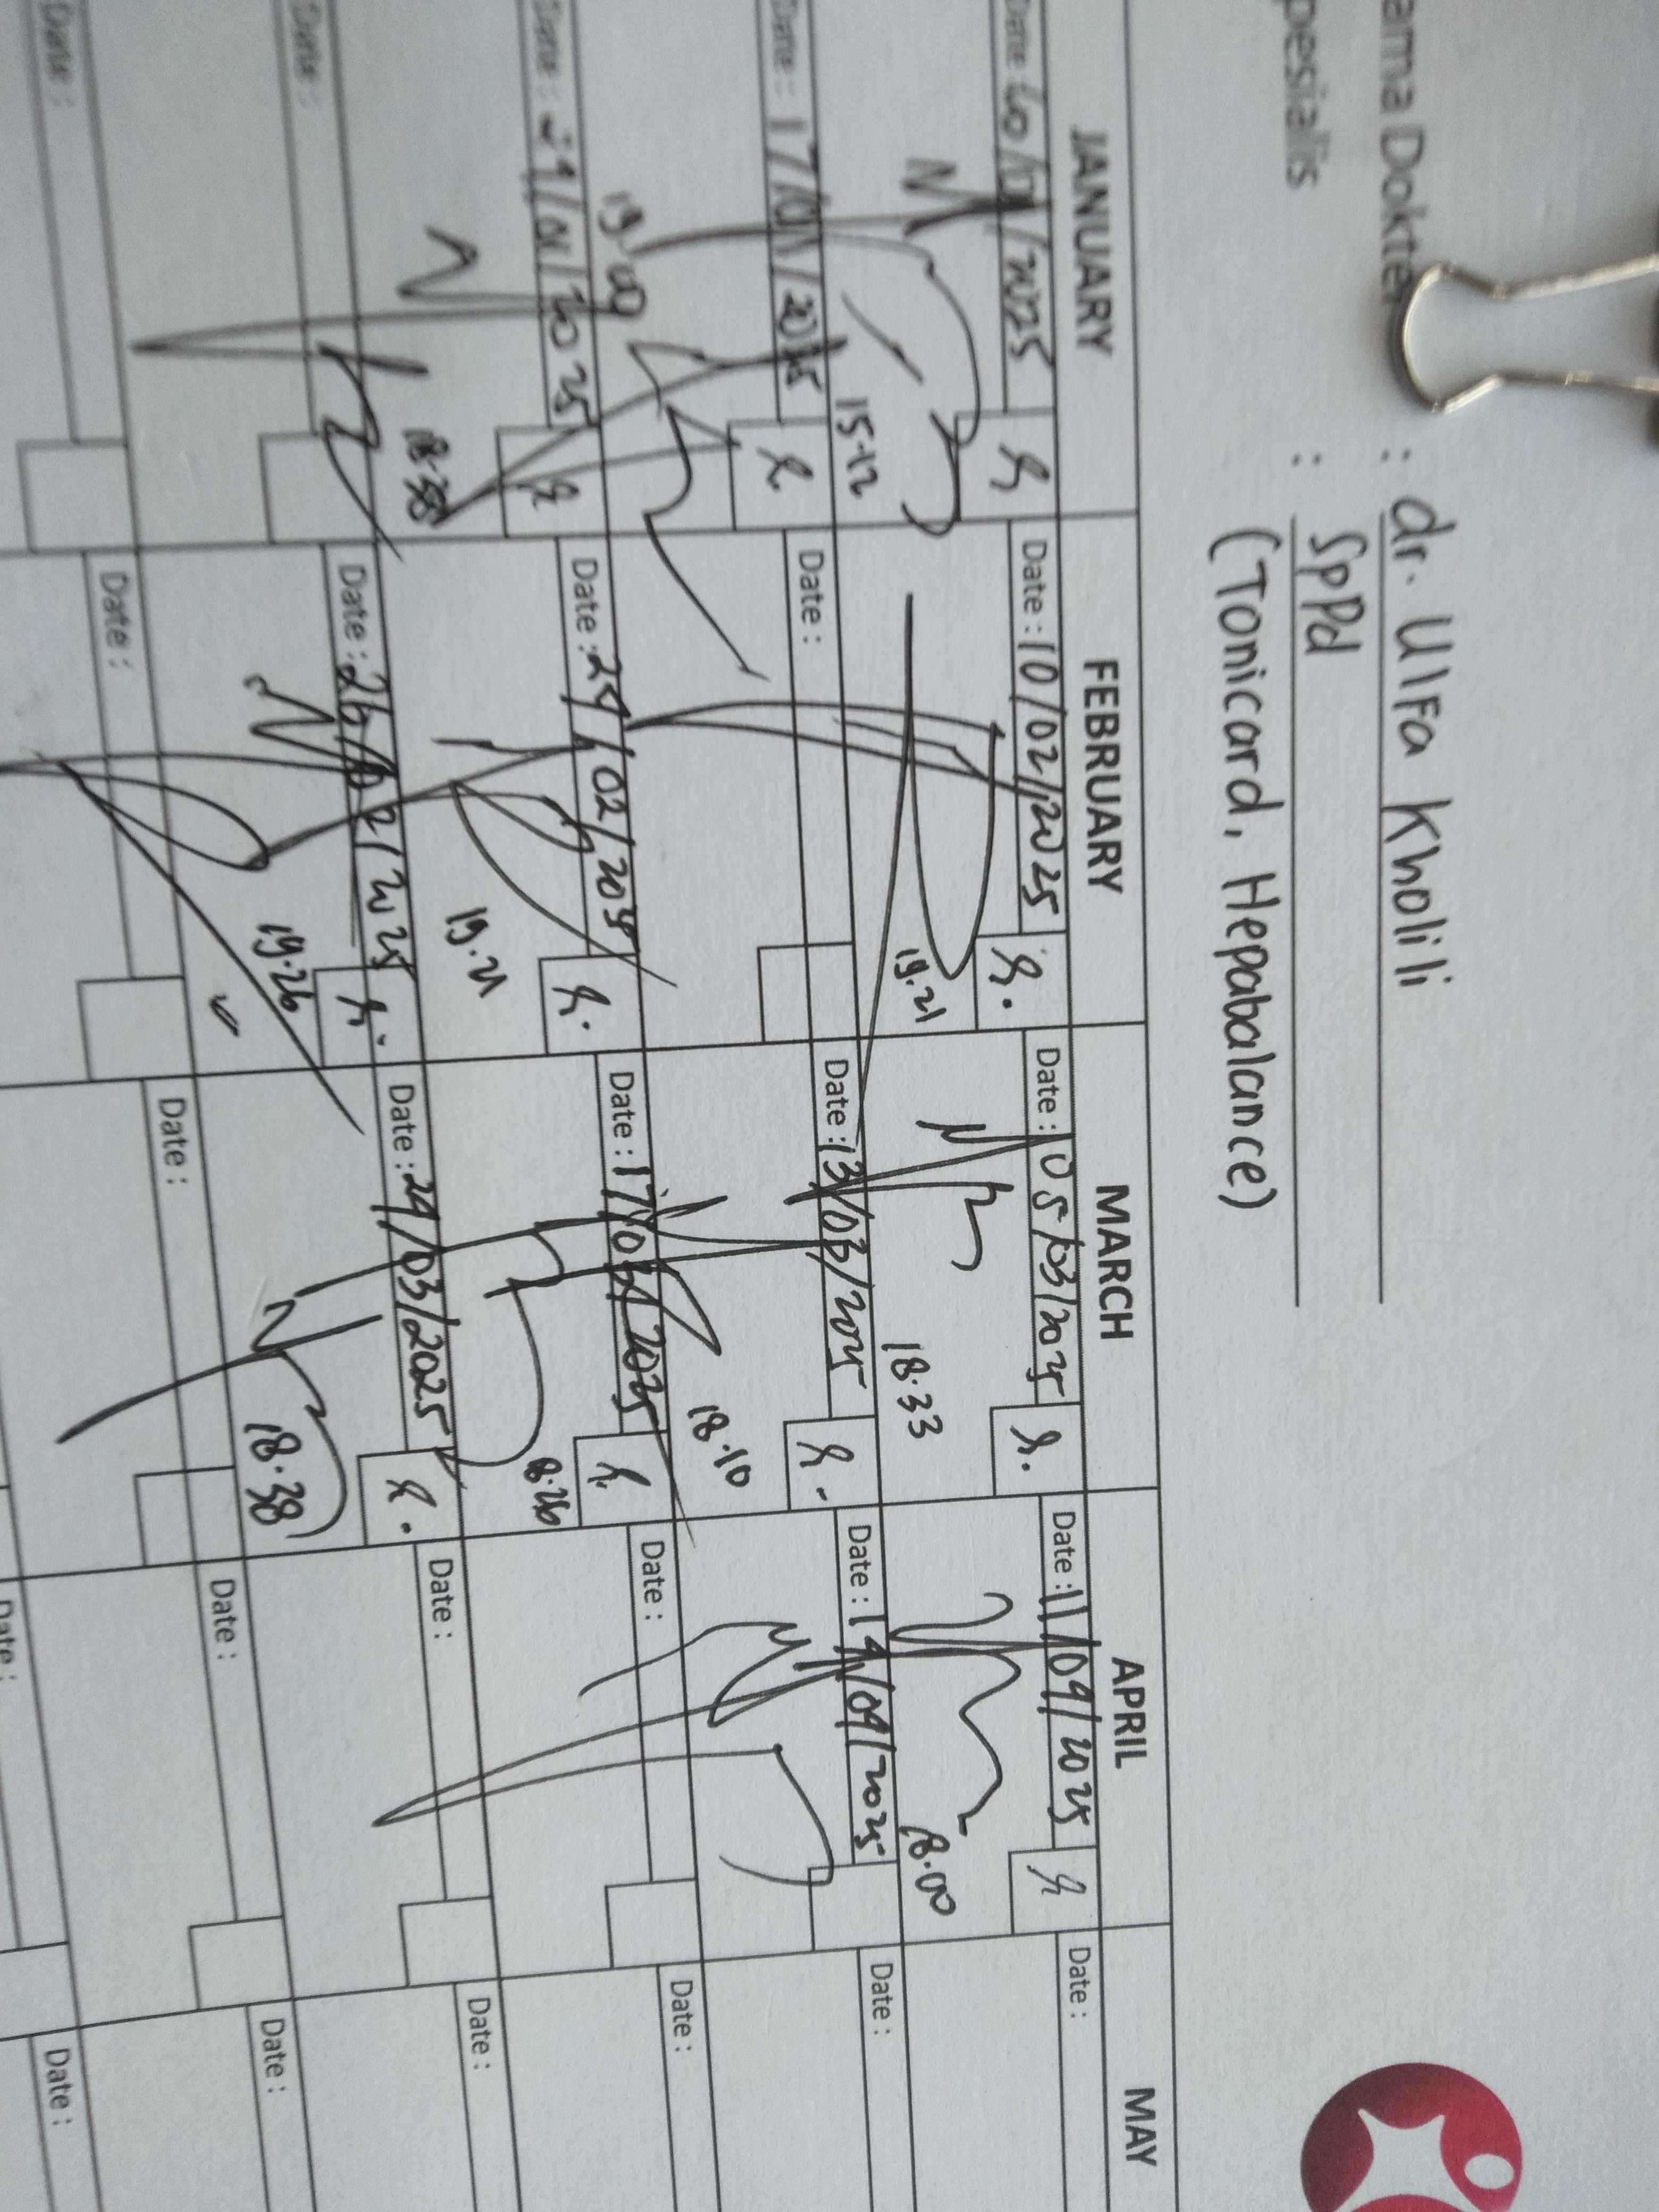 ama Dokter : dr. Ulfa Kholili
pesialis : SpPd
(Tonicard, Hepabalance)
JANUARY FEBRUARY MARCH APRIL MAY
Date : /2025 Date : 10/02/2025 Date : 05/03/2025 Date : 11/04/2025 Date :
15.12 19.21 18.33 18.00
Date : 17/01/2025 Date : Date : 13/03/2025 Date : 14/04/2025 Date :
19.00 18.10
Date : 29/01/2025 Date : 24/02/2025 Date : 17/03/2025 Date : Date :
18.38 19.21 18.26
Date : Date : 26/02/2025 Date : 24/03/2025 Date : Date :
19.26 18.38
Date : Date : Date : Date : Date :
Date : Date :